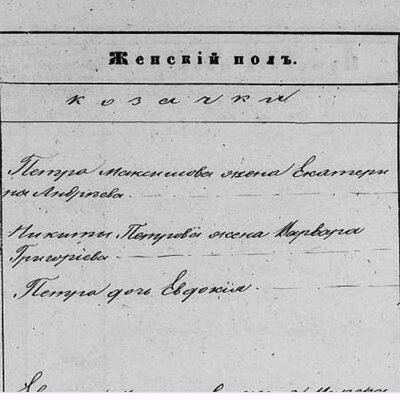 Женскій полъ.
козачки
Петра Максимова жена Екатери
на Андрѣева.
Никиты Петрова жена Варвара
Григоріева.
Петра дочь Евдокія